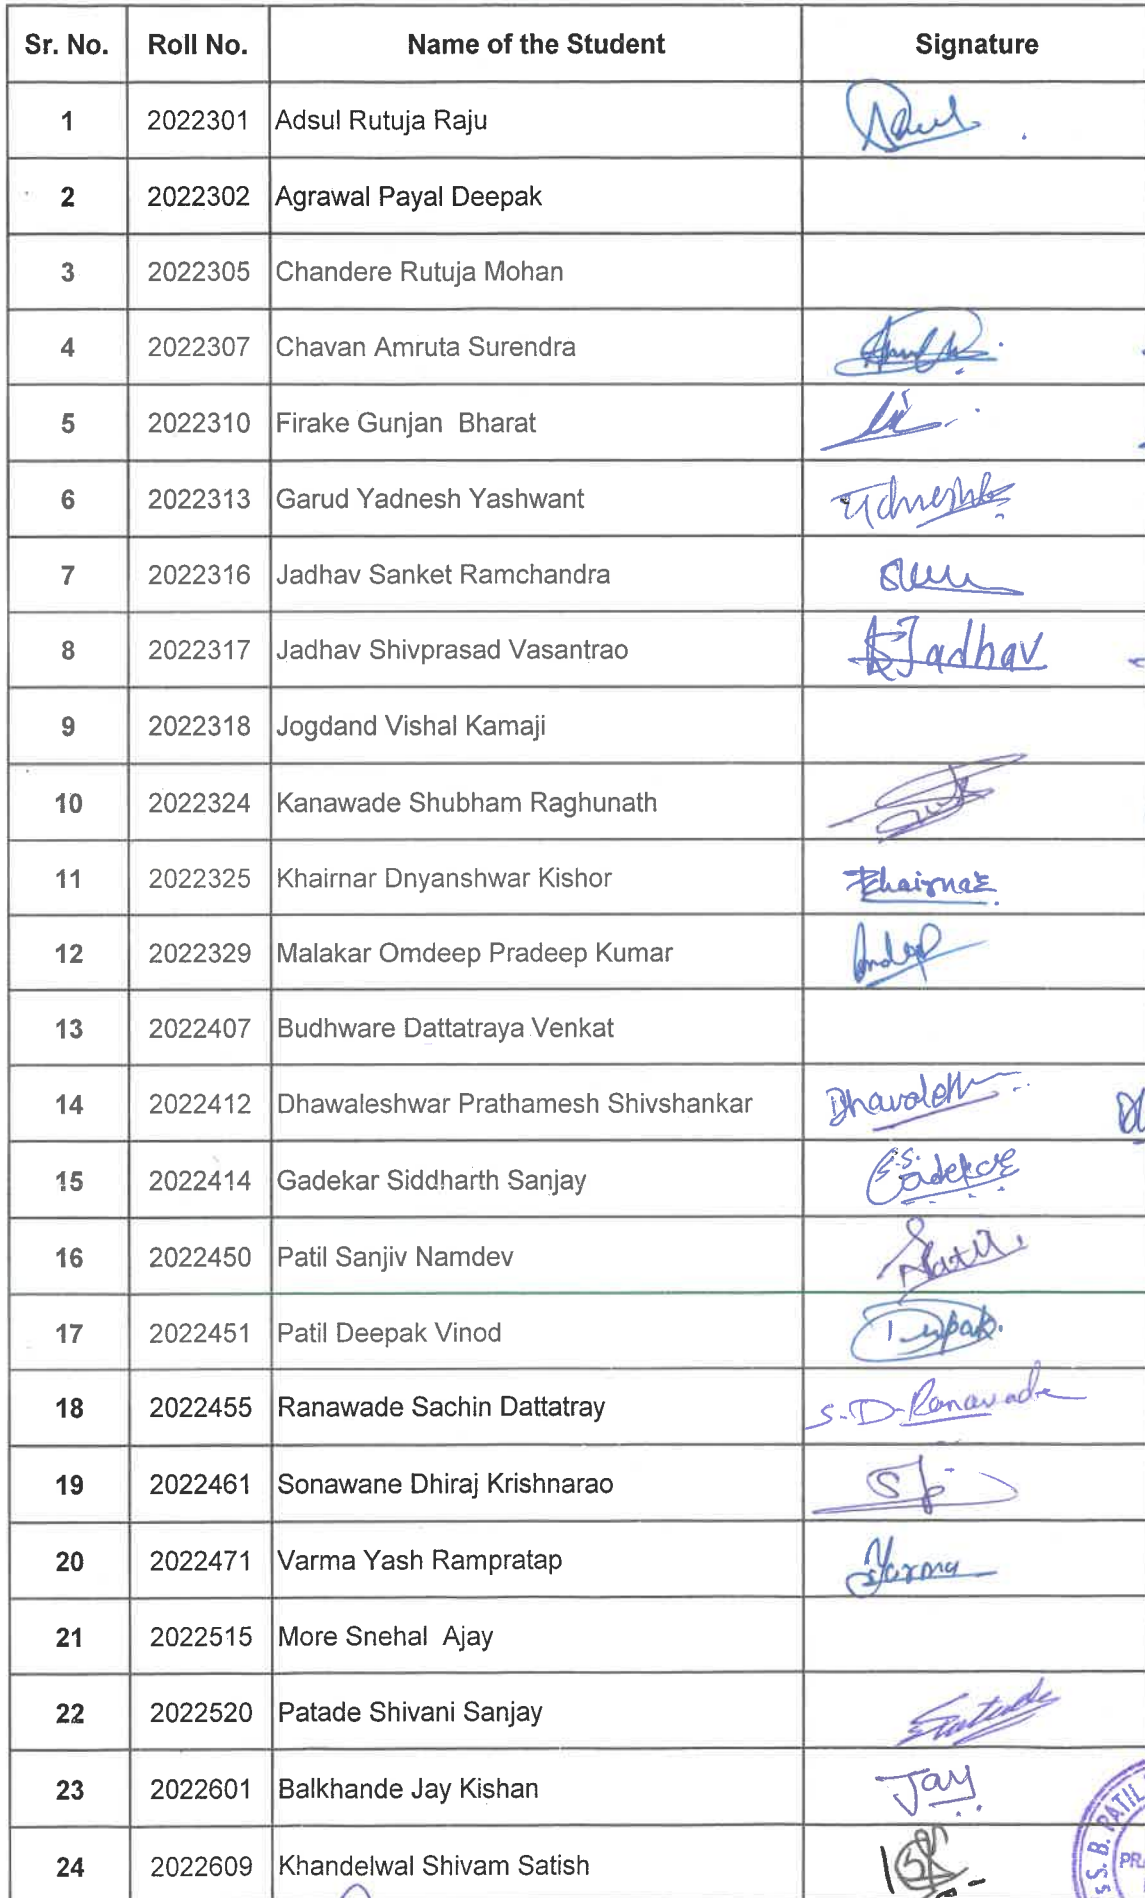 Sr. No. Roll No. Name of the Student Signature
1 2022301 Adsul Rutuja Raju
2 2022302 Agrawal Payal Deepak
3 2022305 Chandere Rutuja Mohan
4 2022307 Chavan Amruta Surendra
5 2022310 Firake Gunjan Bharat
6 2022313 Garud Yadnesh Yashwant
7 2022316 Jadhav Sanket Ramchandra
8 2022317 Jadhav Shivprasad Vasantrao Jadhav
9 2022318 Jogdand Vishal Kamaji
10 2022324 Kanawade Shubham Raghunath
11 2022325 Khairnar Dnyanshwar Kishor Khairnar
12 2022329 Malakar Omdeep Pradeep Kumar
13 2022407 Budhware Dattatraya Venkat
14 2022412 Dhawaleshwar Prathamesh Shivshankar
15 2022414 Gadekar Siddharth Sanjay
16 2022450 Patil Sanjiv Namdev
17 2022451 Patil Deepak Vinod Deepak.
18 2022455 Ranawade Sachin Dattatray S.D. Ranawade
19 2022461 Sonawane Dhiraj Krishnarao
20 2022471 Varma Yash Rampratap
21 2022515 More Snehal Ajay
22 2022520 Patade Shivani Sanjay
23 2022601 Balkhande Jay Kishan Jay
S. B. PATIL
24 2022609 Khandelwal Shivam Satish